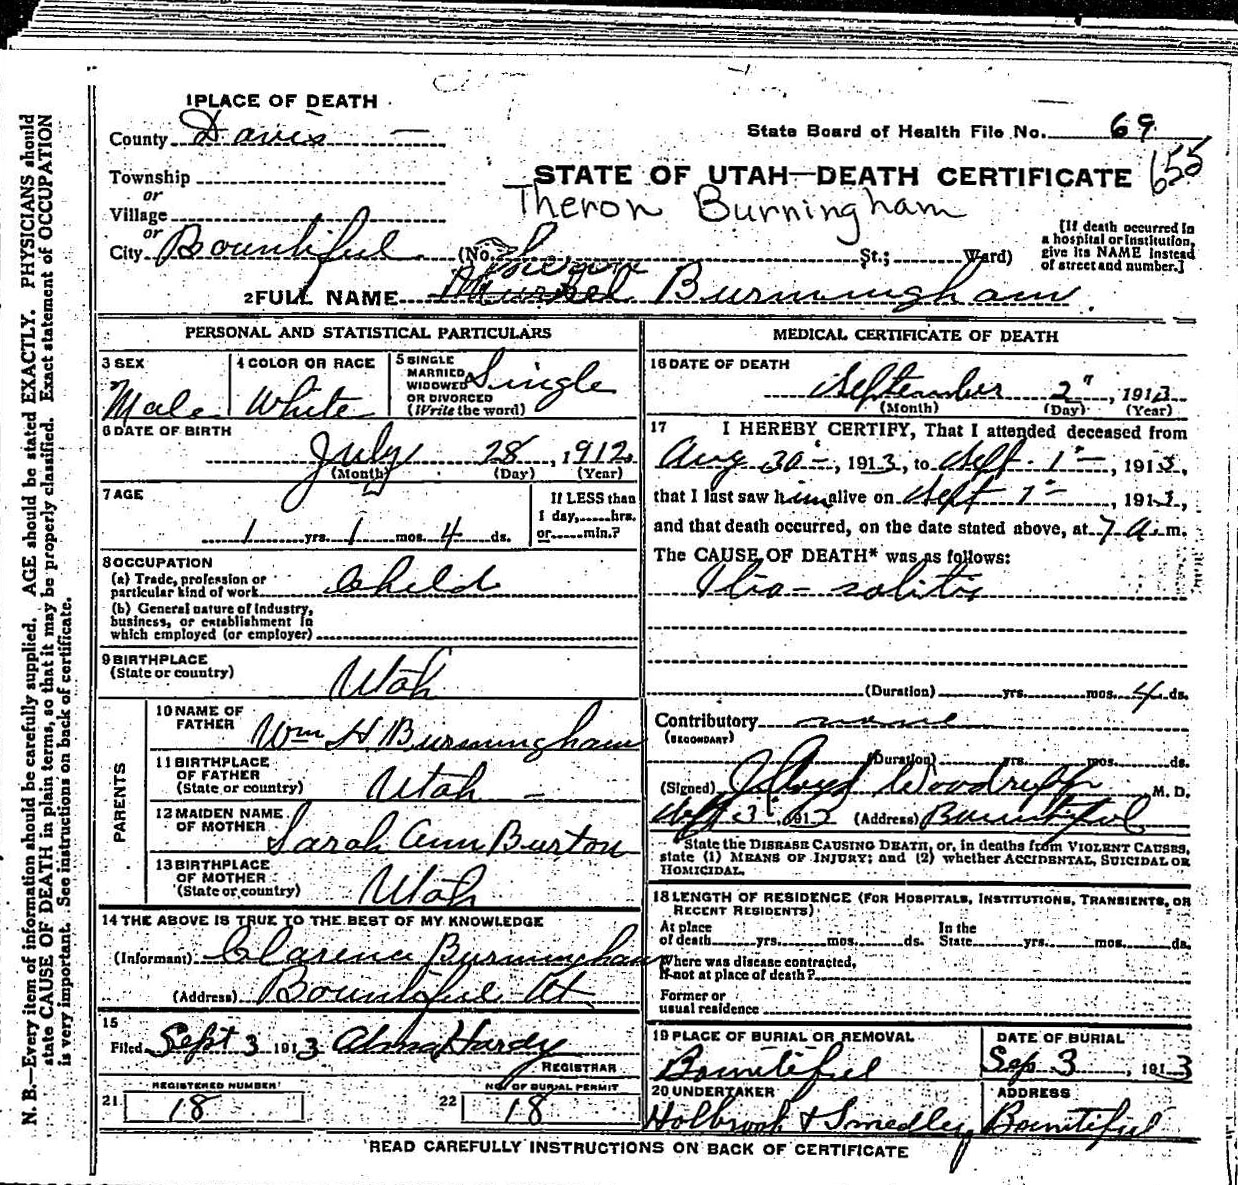 1 PLACE OF DEATH
County Davis
State Board of Health File No. 69
655
Township
or
Village
or
STATE OF UTAH—DEATH CERTIFICATE
Theron Burningham
City Bountiful (No. St.; Ward)
[If death occurred in a hospital or institution, give its NAME instead of street and number.]
Theron
2 FULL NAME Burningham
PERSONAL AND STATISTICAL PARTICULARS
3 SEX
Male
4 COLOR OR RACE
White
5 SINGLE MARRIED WIDOWED OR DIVORCED (Write the word)
Single
6 DATE OF BIRTH
July 28, 1912
(Month) (Day) (Year)
7 AGE
1 yrs. 1 mos. 4 ds.
If LESS than
1 day, hrs.
or min.?
8 OCCUPATION
(a) Trade, profession or
particular kind of work Child
(b) General nature of industry,
business, or establishment in
which employed (or employer)
9 BIRTHPLACE
(State or country) Utah
PARENTS
10 NAME OF FATHER Wm H Burningham
11 BIRTHPLACE OF FATHER (State or country) Utah
12 MAIDEN NAME OF MOTHER Sarah Ann Burton
13 BIRTHPLACE OF MOTHER (State or country) Utah
14 THE ABOVE IS TRUE TO THE BEST OF MY KNOWLEDGE
(Informant) Clarence Burningham
(Address) Bountiful Ut
15
Filed Sept 3 1913 Alma Hardy
REGISTRAR
REGISTERED NUMBER
21 18
NO. OF BURIAL PERMIT
22 18
MEDICAL CERTIFICATE OF DEATH
16 DATE OF DEATH
September 2", 1913
(Month) (Day) (Year)
17 I HEREBY CERTIFY, That I attended deceased from
Aug 30, 1913, to Sept. 1, 1913,
that I last saw him alive on Sept 1, 1913,
and that death occurred, on the date stated above, at 7 a.m.
The CAUSE OF DEATH* was as follows:
Ilio-colitis
(Duration) yrs. mos. 4 ds.
Contributory none
(SECONDARY)
(Duration) yrs. mos. ds.
(Signed) Woodruff M. D.
Sept 3, 1913 (Address) Bountiful
*State the DISEASE CAUSING DEATH, or, in deaths from VIOLENT CAUSES,
state (1) MEANS OF INJURY; and (2) whether ACCIDENTAL, SUICIDAL OR
HOMICIDAL.
18 LENGTH OF RESIDENCE (FOR HOSPITALS, INSTITUTIONS, TRANSIENTS, OR
RECENT RESIDENTS)
At place of death yrs. mos. ds. In the State yrs. mos. ds.
Where was disease contracted,
if not at place of death?
Former or
usual residence
19 PLACE OF BURIAL OR REMOVAL
Bountiful
DATE OF BURIAL
Sep 3, 1913
20 UNDERTAKER
Holbrook & Smedley
ADDRESS
Bountiful
READ CAREFULLY INSTRUCTIONS ON BACK OF CERTIFICATE
N. B.—Every item of information should be carefully supplied. AGE should be stated EXACTLY. PHYSICIANS should
state CAUSE OF DEATH in plain terms, so that it may be properly classified. Exact statement of OCCUPATION
is very important. See instructions on back of certificate.